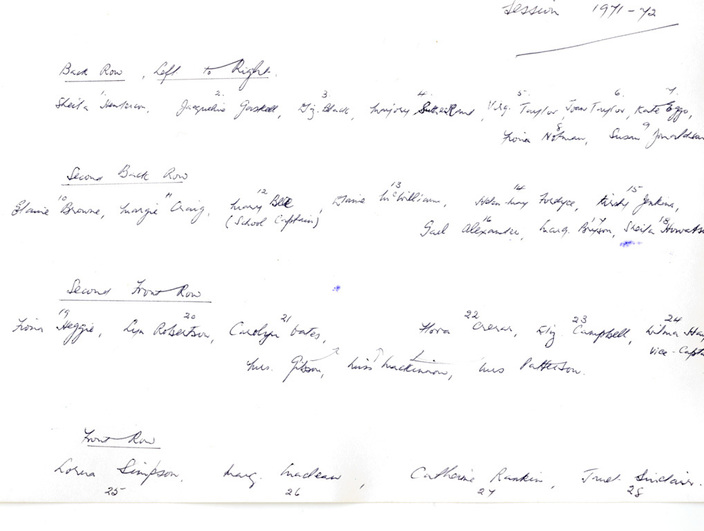 Session 1971-72
Back Row, Left to Right.
1 2. 3 4. 5. 6. 7.
Sheila Jacqueline Gaskell, Liz. Black, Marjory Sutherland, Marg. Taylor, Joan Taylor, Kate Eggo,
8 9
Fiona Susan Donaldson
Second Back Row
10 11 12 13 14 15
Elaine Browne, Margie Craig, Mary Bell McWilliam, Helen May Fordyce, Kirsty Jenkins,
(School Captain)
16 17 18
Gael Alexander, Marg. Sheila Howatson
Second Front Row
19 20 21 22 23 24
Fiona Heggie, Lyn Robertson, Carolyn Oates, Fiona Crerar, Liz Campbell, Wilma Hay
Vice-Capt
Mrs. Gibson, Miss Mackinnon, Mrs Patterson.
Front Row
Lorna Simpson, Marg. Maclean, Catherine Rankin, Sinclair.
25 26 27 28